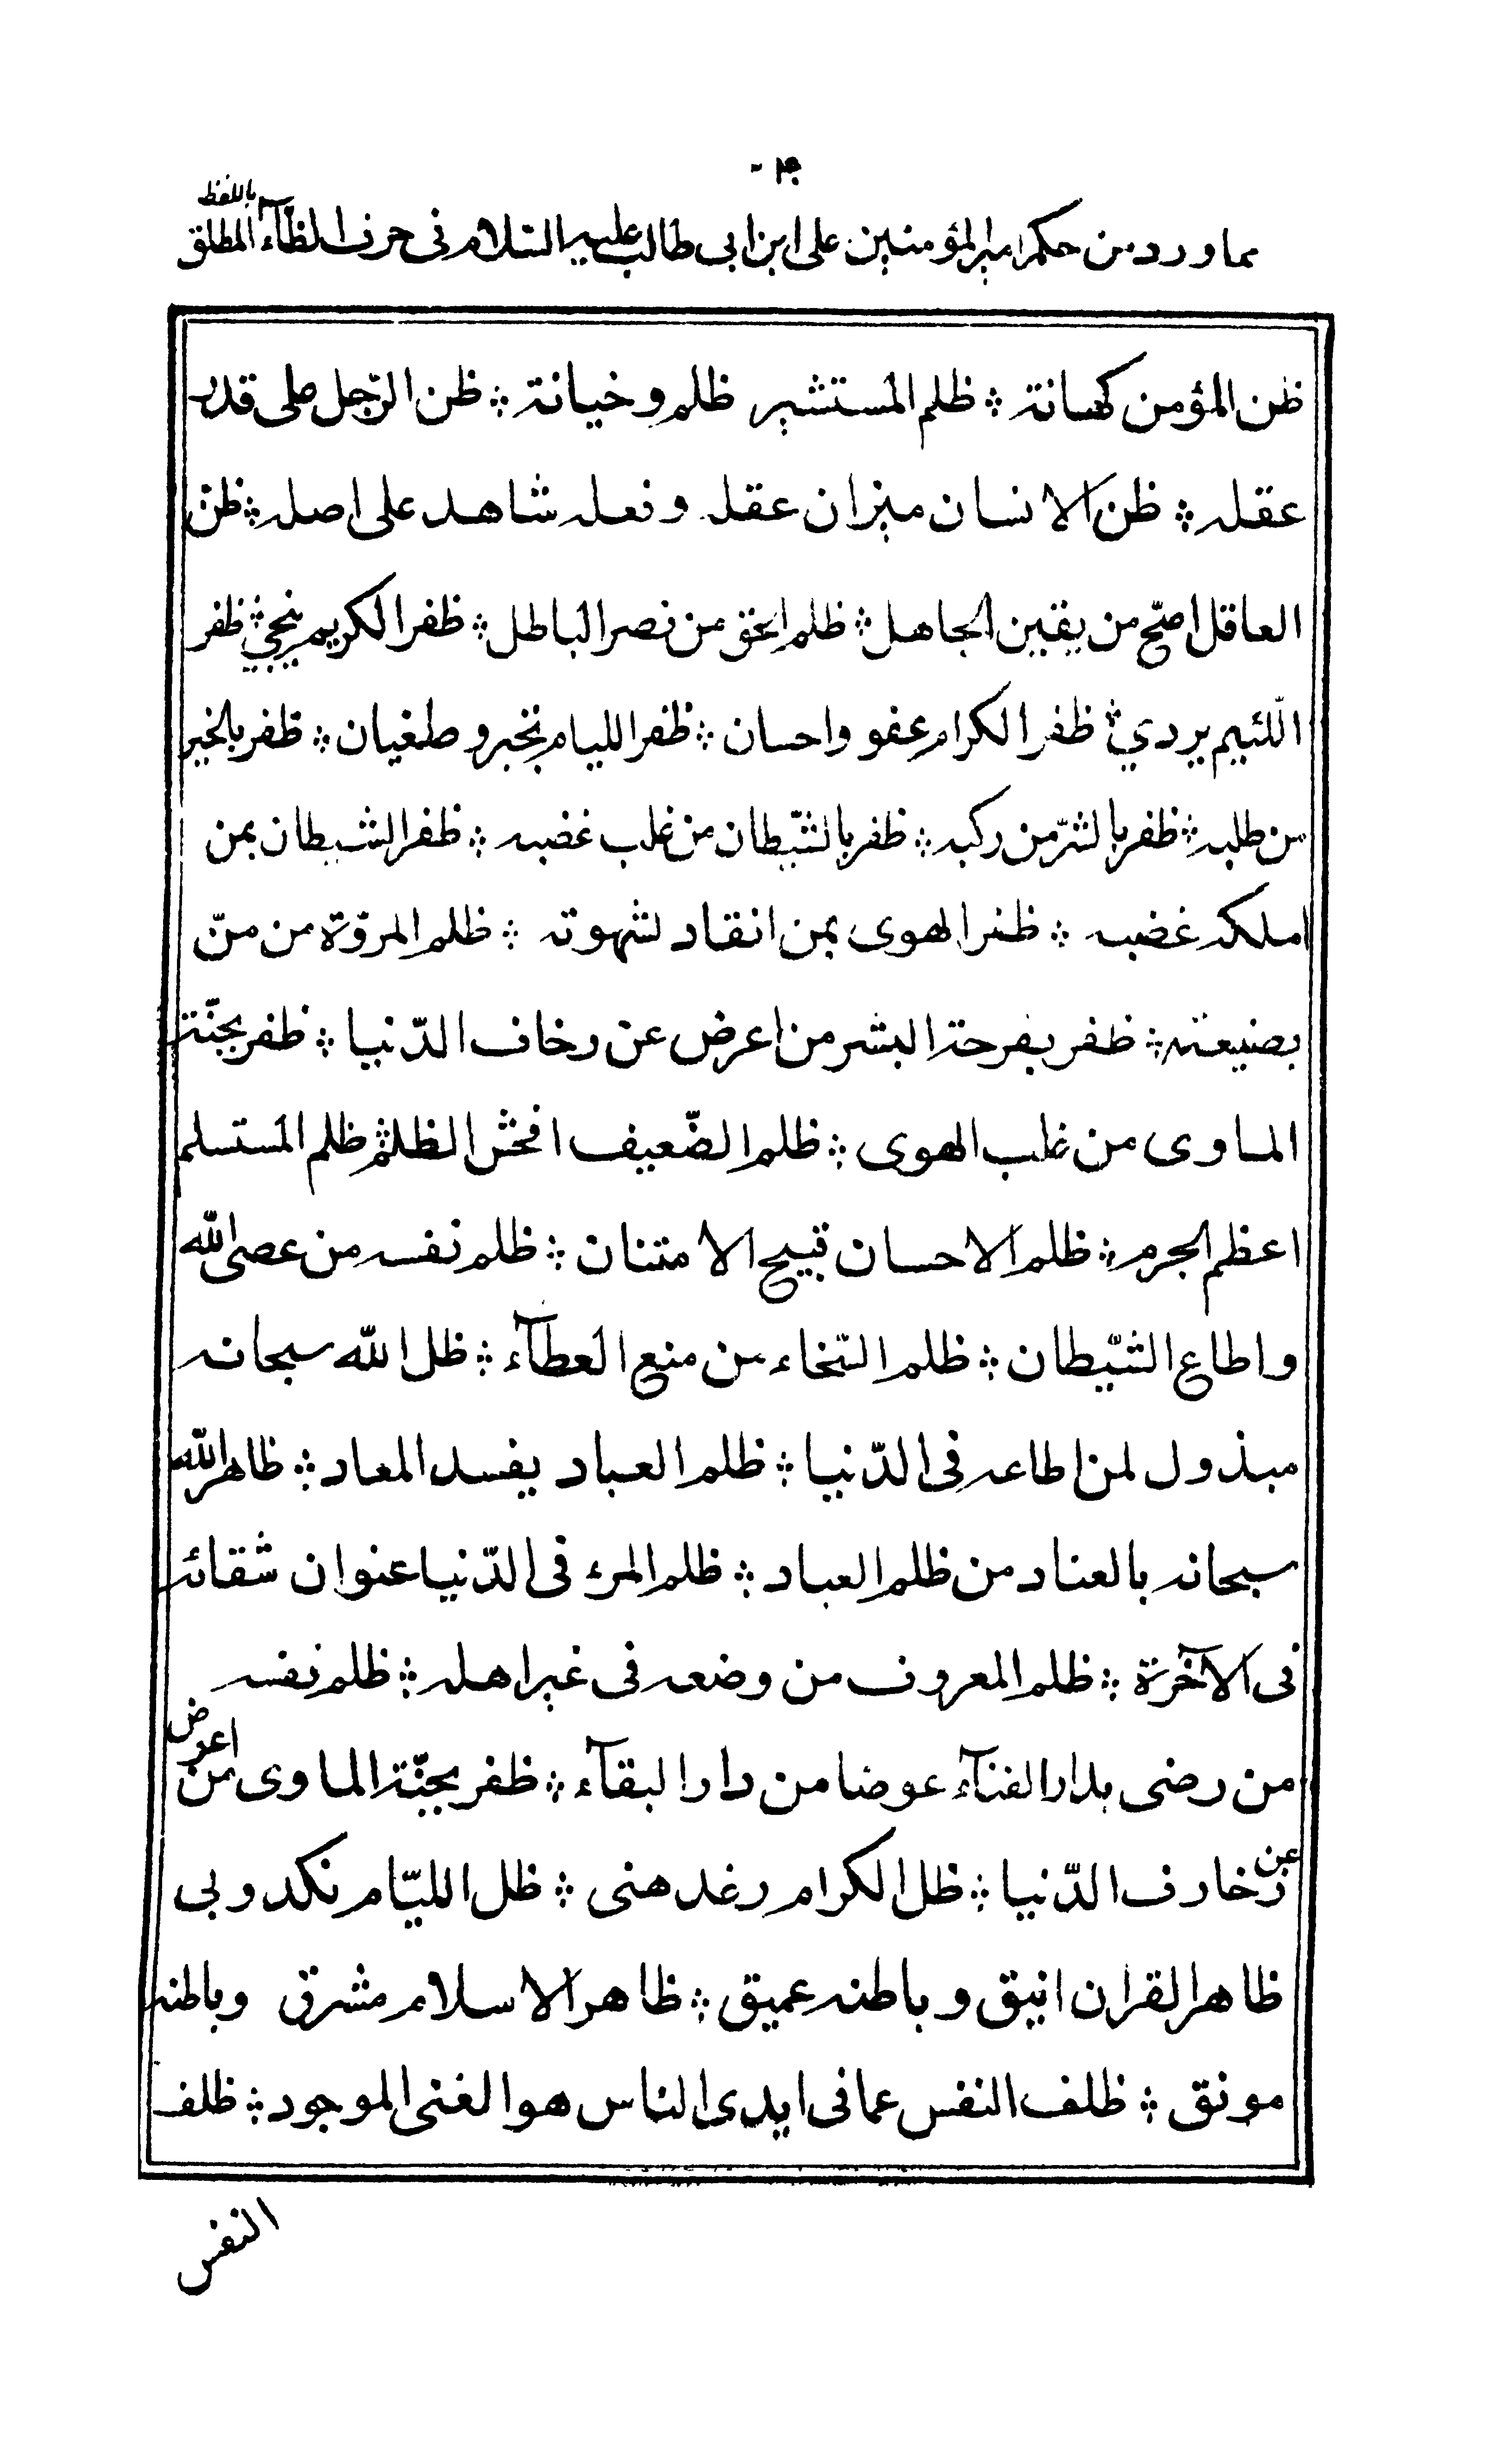 مما ورد من حكم امير المؤمنين على ابن ابى طالب عليه السّلام فى حرف الظّآء باللفظ المطلق
ظن المؤمن كهانة ؞ ظلم المستشير ظلم و خيانة ؞ ظن الرّجل على قدر
عقله ؞ ظن الانسان ميزان عقله و فعله شاهد على اصله ؞ ظن
العاقل اصحّ من يقين الجاهل ؞ ظلم الحق من نصر الباطل ؞ ظفر الكريم ينجي ؞ ظفر
اللّئيم يردي ؞ ظفر الكرام عفو واحسان ؞ ظفر الليام تجبر و طغيان ؞ ظفر بالخير
من طلبه ؞ ظفر بالشرّ من ركبه ؞ ظفر بالشّيطان من غلب غضبه ؞ ظفر الشيطان بمن
املكه غضبه ؞ ظفر الهوى بمن انقاد لشهوته ؞ ظلم المروّة من منّ
بصنيعته ؞ ظفر بفرحة البشر من اعرض عن رخاف الدّنيا ؞ ظفر بجنّة
الماوى من غلب الهوى ؞ ظلم الضّعيف افحش الظلم ؞ ظلم المستسلم
اعظم الجرم ؞ ظلم الاحسان قبيح الامتنان ؞ ظلم نفسه من عصى اللّه
واطاع الشّيطان ؞ ظلم السّخاء من منع العطآء ؞ ظل اللّه سبحانه
مبذول لمن اطاعه فى الدّنيا ؞ ظلم العباد يفسد المعاد ؞ ظاهر اللّه
سبحانه بالعناد من ظلم العباد ؞ ظلم المرء فى الدّنيا عنوان شقائه
فى الآخرة ؞ ظلم المعروف من وضعه فى غير اهله ؞ ظلم نفسه
من رضى بدار الفنآء عوضا من دار البقآء ؞ ظفر بجنّة الماوى من اعرض
عن زخارف الدّنيا ؞ ظل الكرام رغد هنى ؞ ظل الليّام نكد وبى
ظاهر القران انيق و باطنه عميق ؞ ظاهر الاسلام مشرق وباطنه
مونق ؞ ظلف النفس عما فى ايدى الناس هو الغنى الموجود ؞ ظلف
النفس